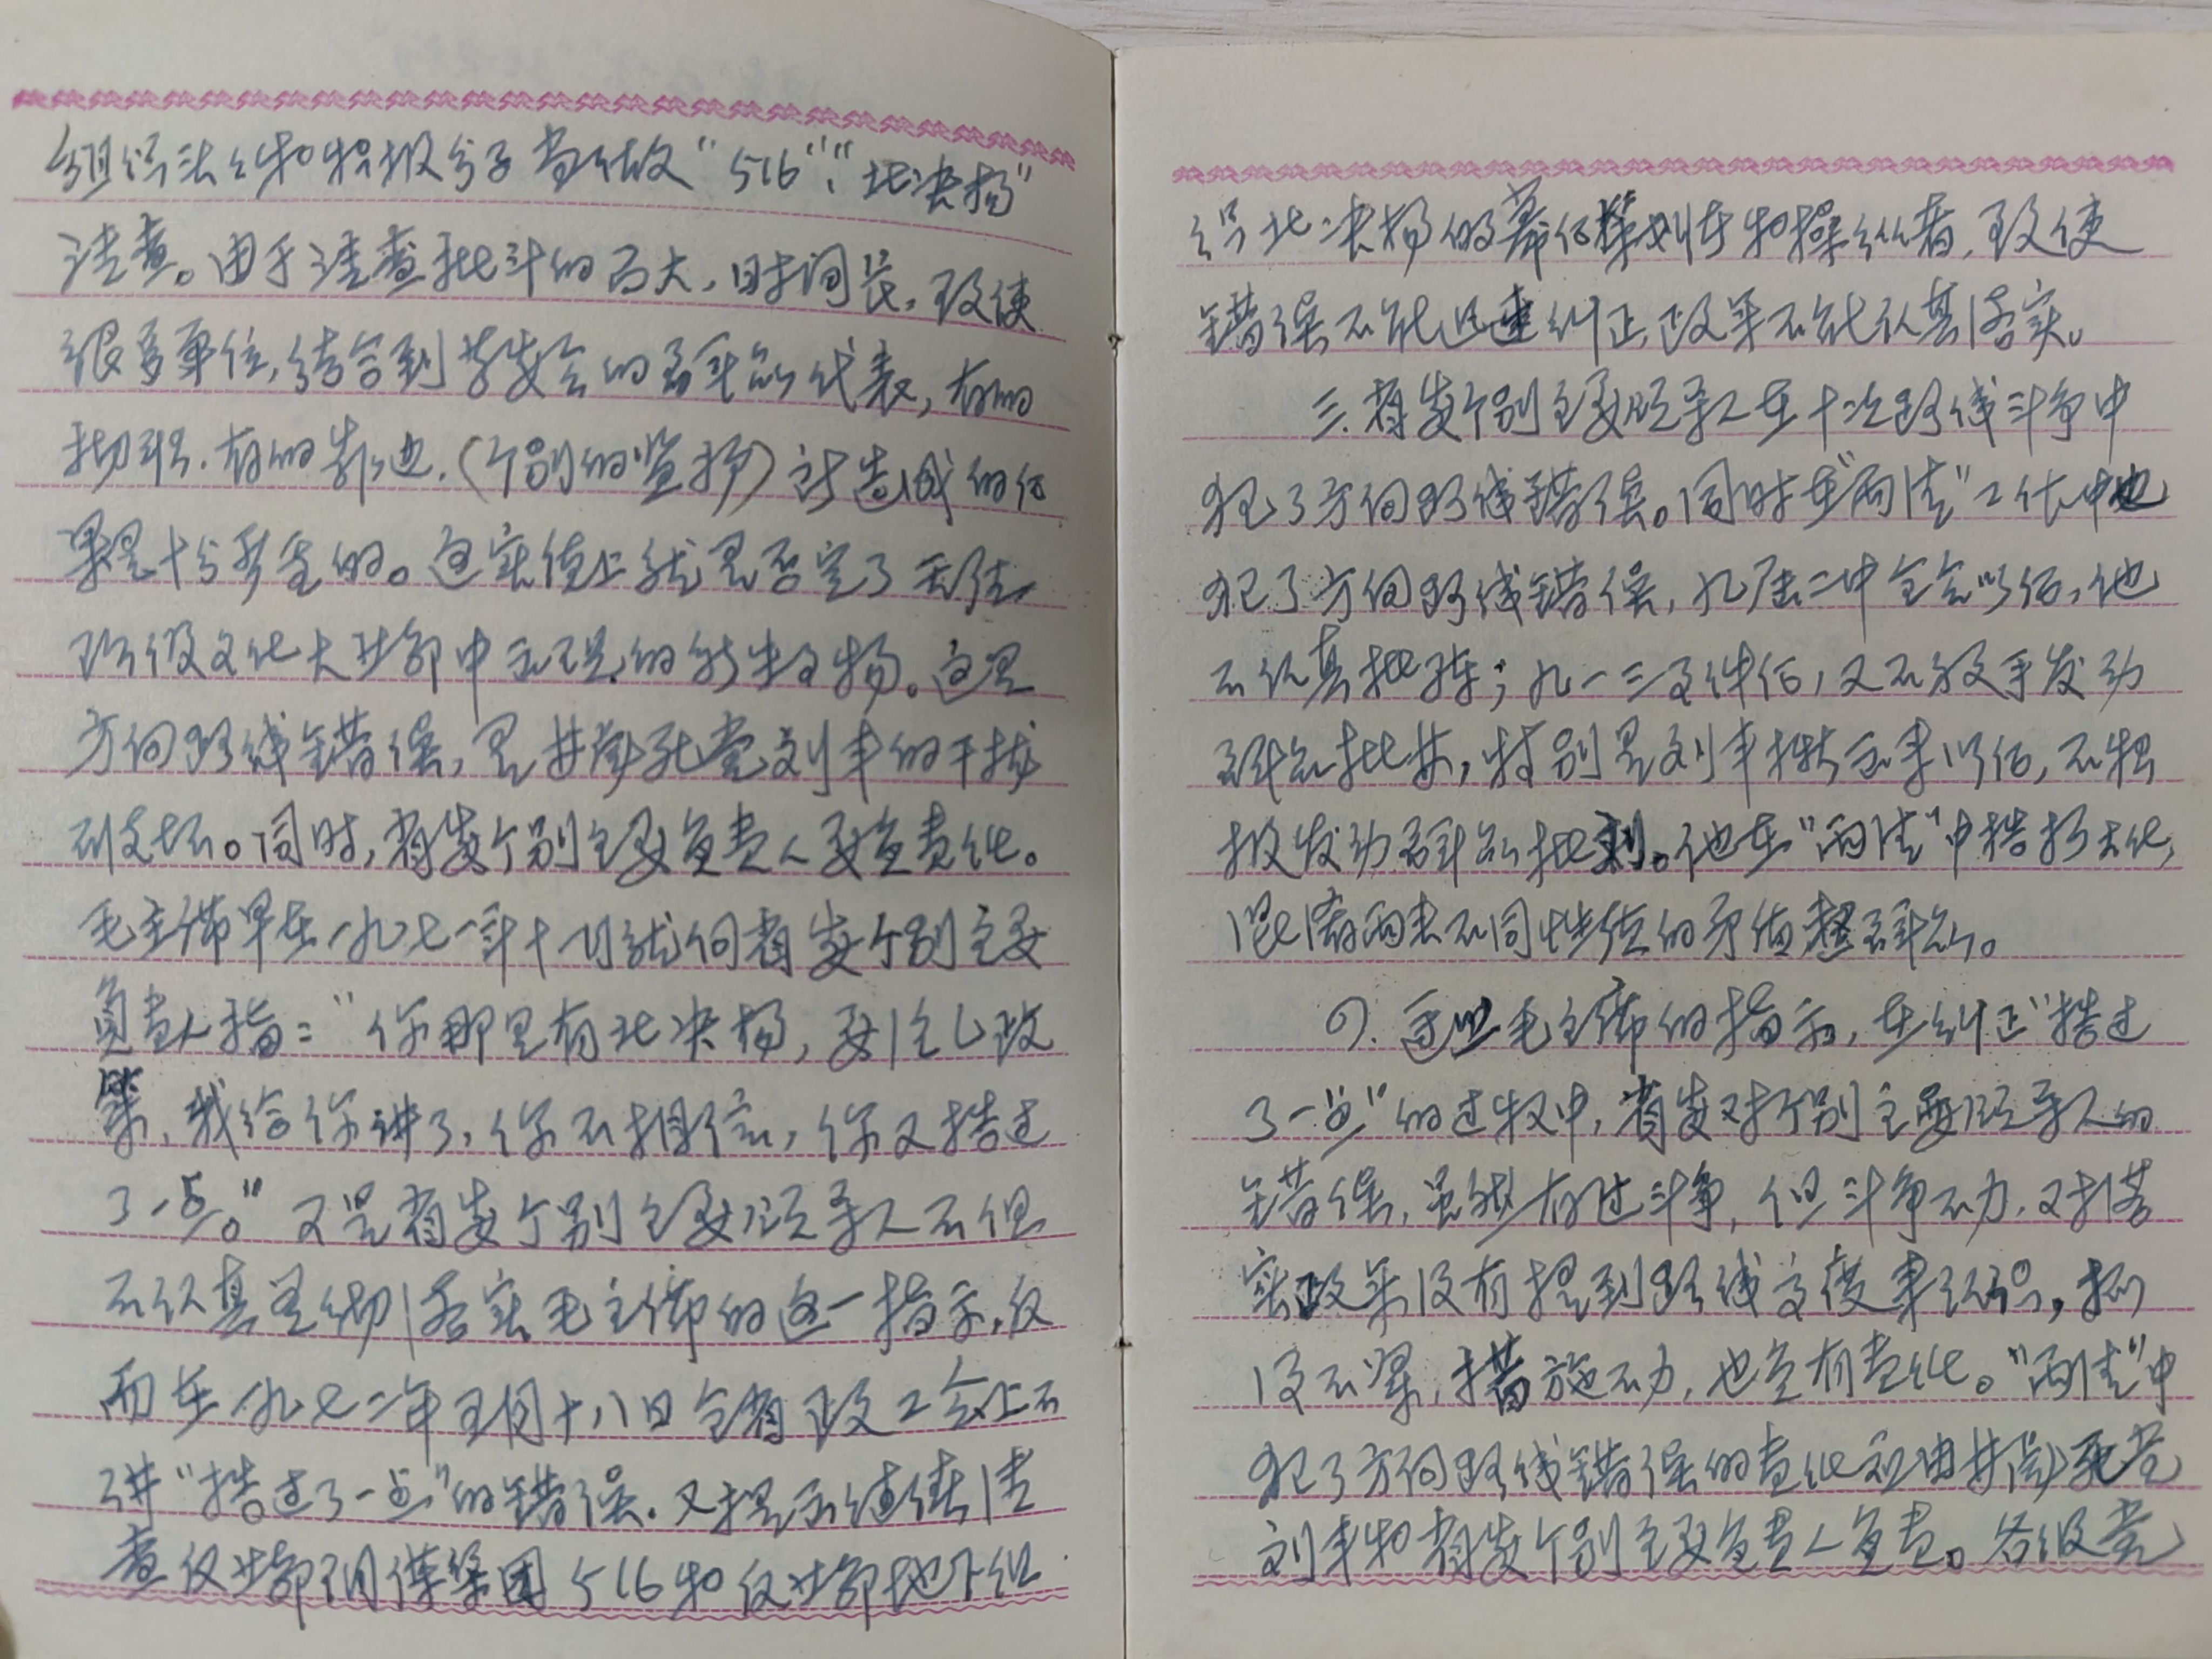 组织头头和积极分子当做"516"、"北决扬"
清查。由于清查批斗的面大,时间长,致使
很多单位,结合到革委会的群众代表,有的
撤职,有的靠边,(个别的逮捕)所造成的后
果是十分严重的。这实质上就是否定了无产
阶级文化大革命中出现的新生事物。这是
方向路线错误,是林彪死党刘丰的干扰
和破坏。同时,省委个别主要负责人要负责任。
毛主席早在一九七一年十一月就向省委个别主要
负责人指:"你那里有北决扬,要注意政
策,我给你讲了,你不相信,你又搞过
了一点。"又是省委个别主要领导人不但
不认真贯彻落实毛主席的这一指示,反
而在一九七二年五月十八日全省政工会上不
讲"搞过了一点"的错误。又提出继续清
查反革命阴谋集团516和反革命地下组
织北决扬的幕后策划者和操纵者,致使
错误不能迅速纠正,政策不能认真落实。
三、省委个别主要领导人在十次路线斗争中
犯了方向路线错误。同时在"两清"工作中也
犯了方向路线错误,九届二中全会以后,他
不认真批陈;九一三事件后,又不放手发动
群众批林,特别是刘丰揪出来以后,不积
极发动群众批判。他在"两清"中搞扩大化,
混淆两类不同性质的矛盾整群众。
四、遵照毛主席的指示,在纠正"搞过
了一点"的过程中,省委对个别主要领导人的
错误,虽然有过斗争,但斗争不力,对落
实政策没有提到路线高度来认识,抓
得不紧,措施不力,也负有责任。"两清"中
犯了方向路线错误的责任应由林彪死党
刘丰和省委个别主要负责人负责。各级党